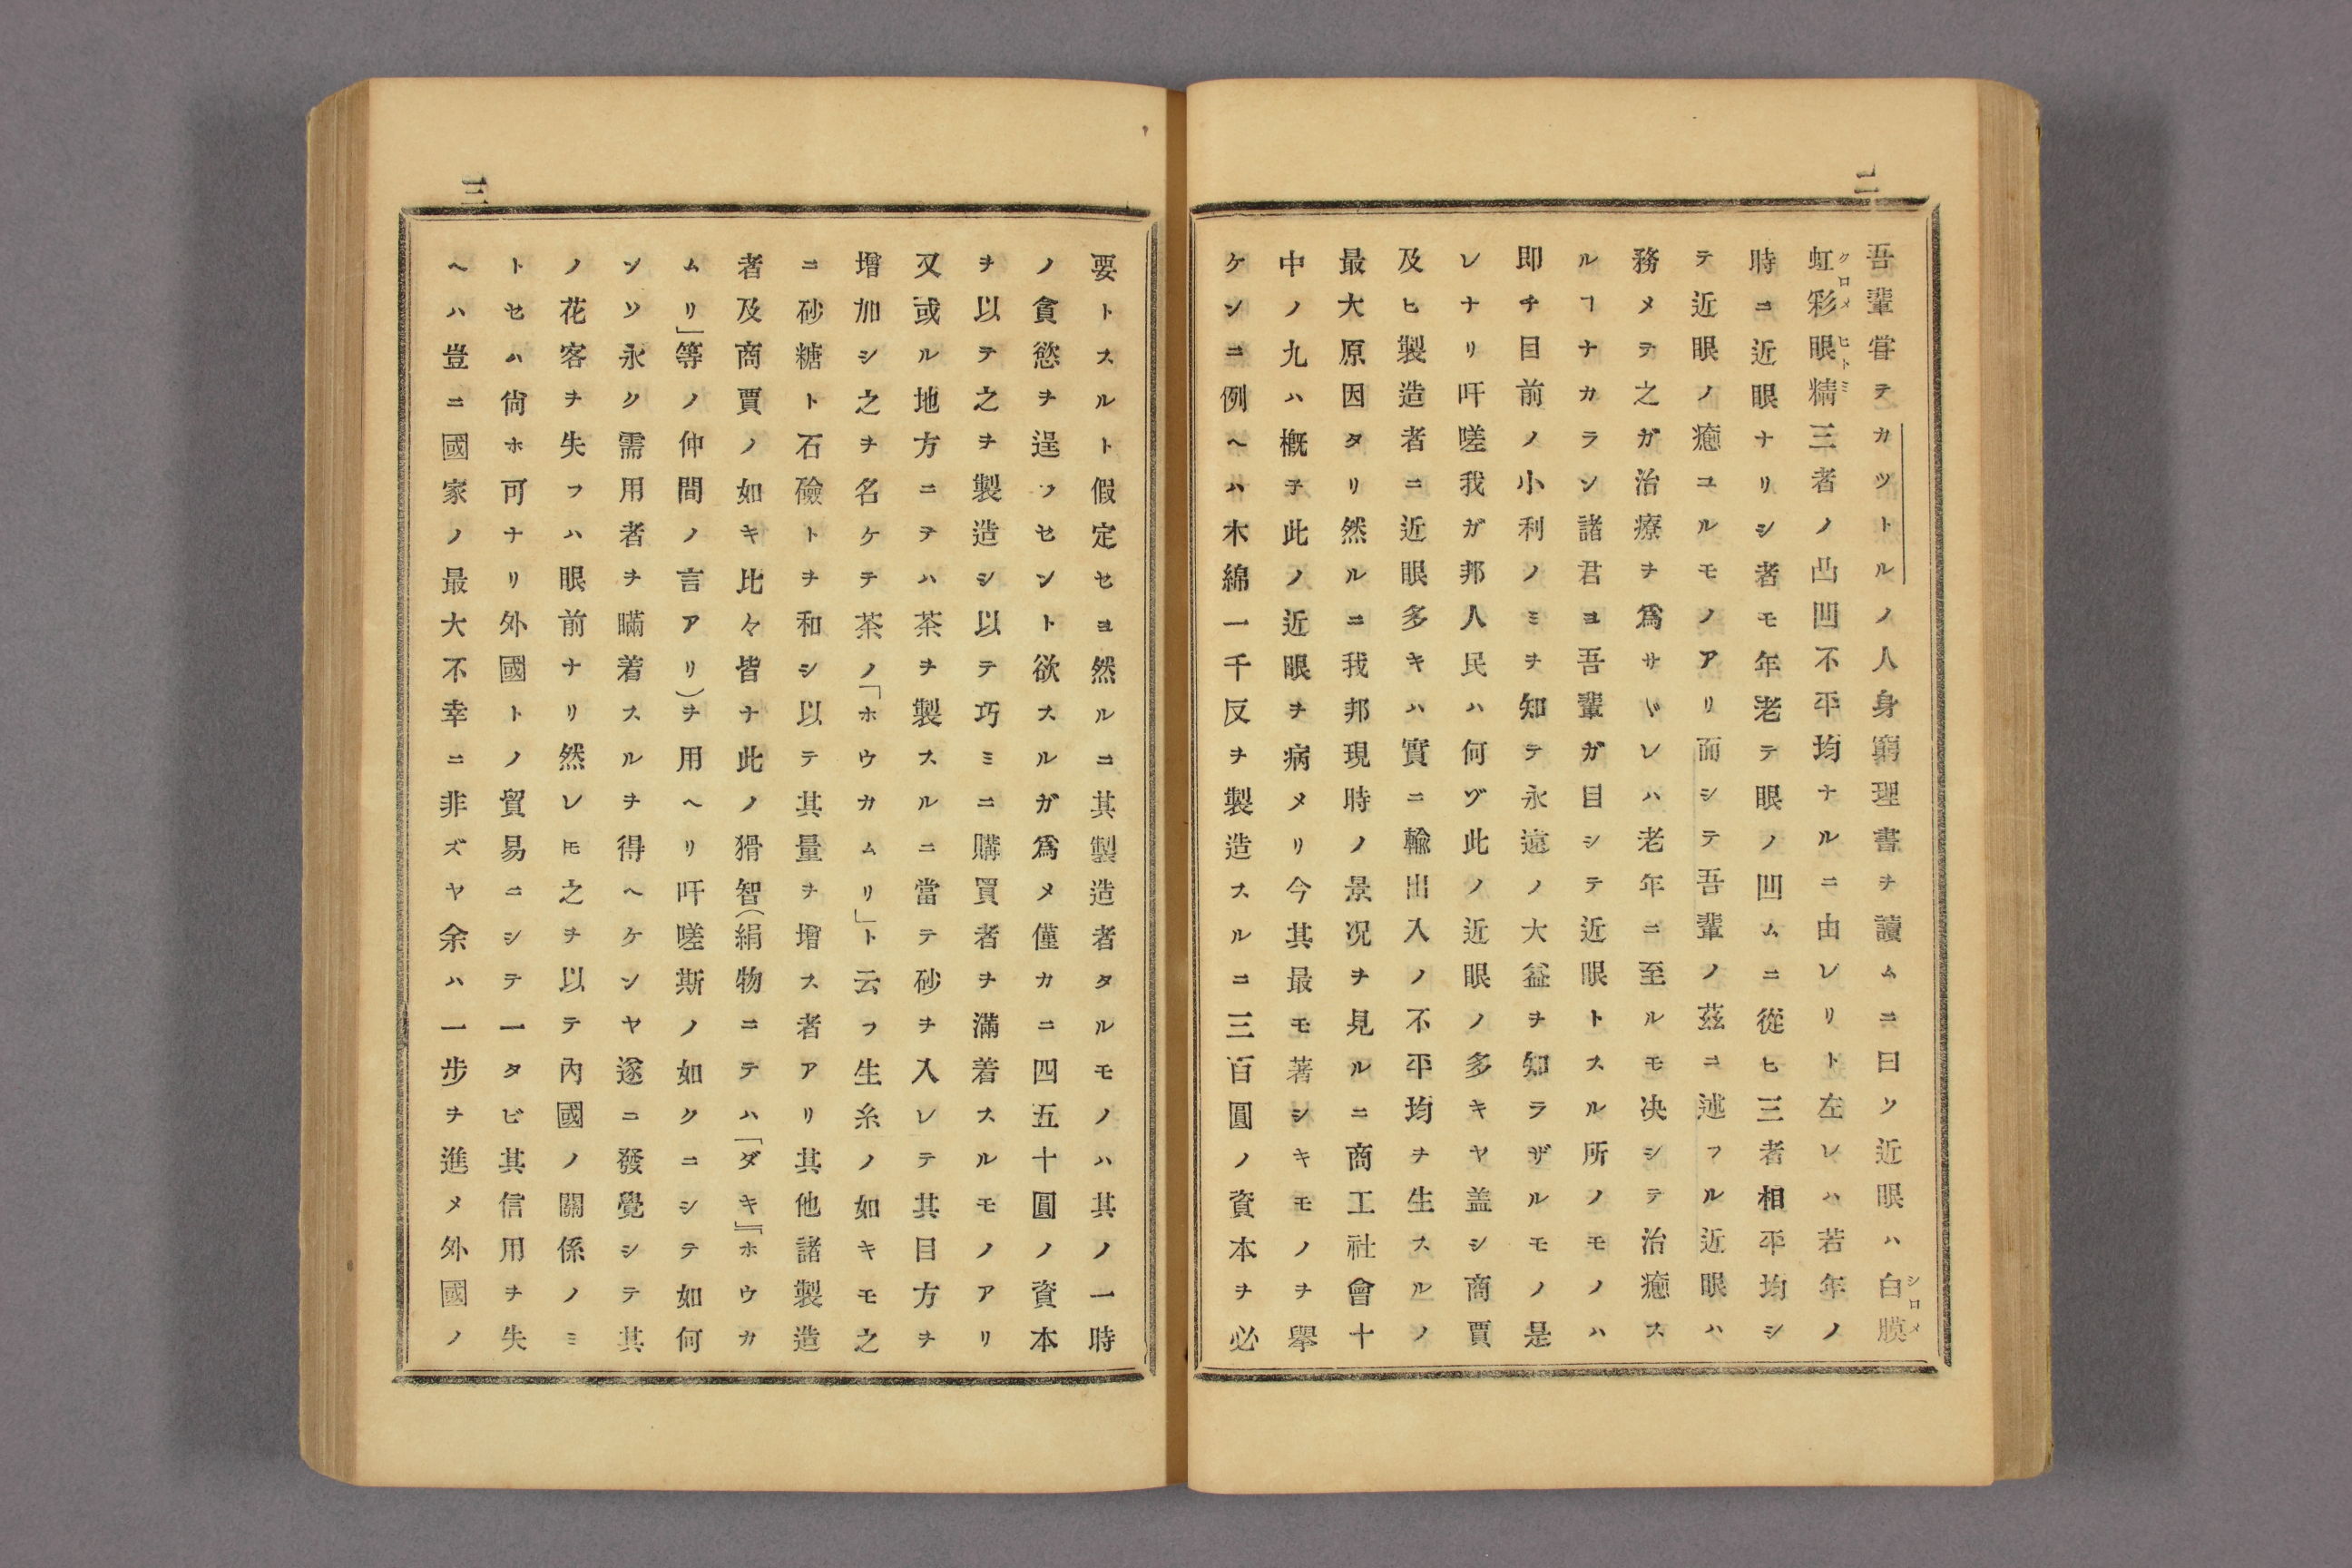 二
吾輩甞テカツトルノ人身窮理書ヲ讀ムニ曰ク近眼ハ白膜
シロメ
虹彩眼精三者ノ凸凹不平均ナルニ由レリト左レハ若年ノ
クロメ ヒトミ
時ニ近眼ナリシ者モ年老テ眼ノ凹ムニ從ヒ三者相平均シ
テ近眼ノ癒ユルモノアリ而シテ吾輩ノ茲ニ述フル近眼ハ
務メテ之ガ治療ヲ爲サヾレハ老年ニ至ルモ决シテ治癒ス
ルヿナカラン諸君ヨ吾輩ガ目シテ近眼トスル所ノモノハ
即チ目前ノ小利ノミヲ知テ永遠ノ大益ヲ知ラザルモノ是
レナリ吁嗟我ガ邦人民ハ何ヅ此ノ近眼ノ多キヤ盖シ商賈
及ヒ製造者ニ近眼多キハ實ニ輸出入ノ不平均ヲ生スルノ
最大原因タリ然ルニ我邦現時ノ景况ヲ見ルニ商工社會十
中ノ九ハ概子此ノ近眼ヲ病メリ今其最モ著シキモノヲ擧
ケンニ例ヘハ木綿一千反ヲ製造スルニ三百圓ノ資本ヲ必
三
要トスルト假定セヨ然ルニ其製造者タルモノハ其ノ一時
ノ貪慾ヲ逞フセント欲スルガ爲メ僅カニ四五十圓ノ資本
ヲ以テ之ヲ製造シ以テ巧ミニ購買者ヲ滿着スルモノアリ
又或ル地方ニテハ茶ヲ製スルニ當テ砂ヲ入レテ其目方ヲ
增加シ之ヲ名ケテ茶ノ「ホウカムリ」ト云フ生糸ノ如キモ之
ニ砂糖ト石鹼トヲ和シ以テ其量ヲ增ス者アリ其他諸製造
者及商賈ノ如キ比々皆ナ此ノ猾智(絹物ニテハ「ダキ』ホウカ
ムリ」等ノ仲間ノ言アリ)ヲ用ヘリ吁嗟斯ノ如クニシテ如何
ンソ永ク需用者ヲ瞞着スルヲ得ヘケンヤ遂ニ發覺シテ其
ノ花客ヲ失フハ眼前ナリ然レ𪜈之ヲ以テ內國ノ關係ノミ
トセハ尙ホ可ナリ外國トノ貿易ニシテ一タビ其信用ヲ失
ヘハ豈ニ國家ノ最大不幸ニ非ズヤ余ハ一步ヲ進メ外國ノ